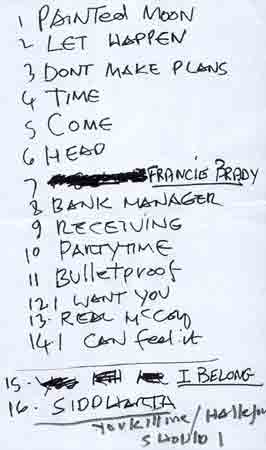 1 PAINTED MOON
2 LET HAPPEN
3 DONT MAKE PLANS
4 TIME
5 COME
6 HEAD
7 FRANCIE BRADY
8 BANK MANAGER
9 RECEIVING
10 PARTYTIME
11 Bulletproof
12. I WANT YOU
13. REAL McCoy
14 I CAN feel it
15. I BELONG
16. SIDDHARTA
YouKillme/Hallelu
SHOULD I